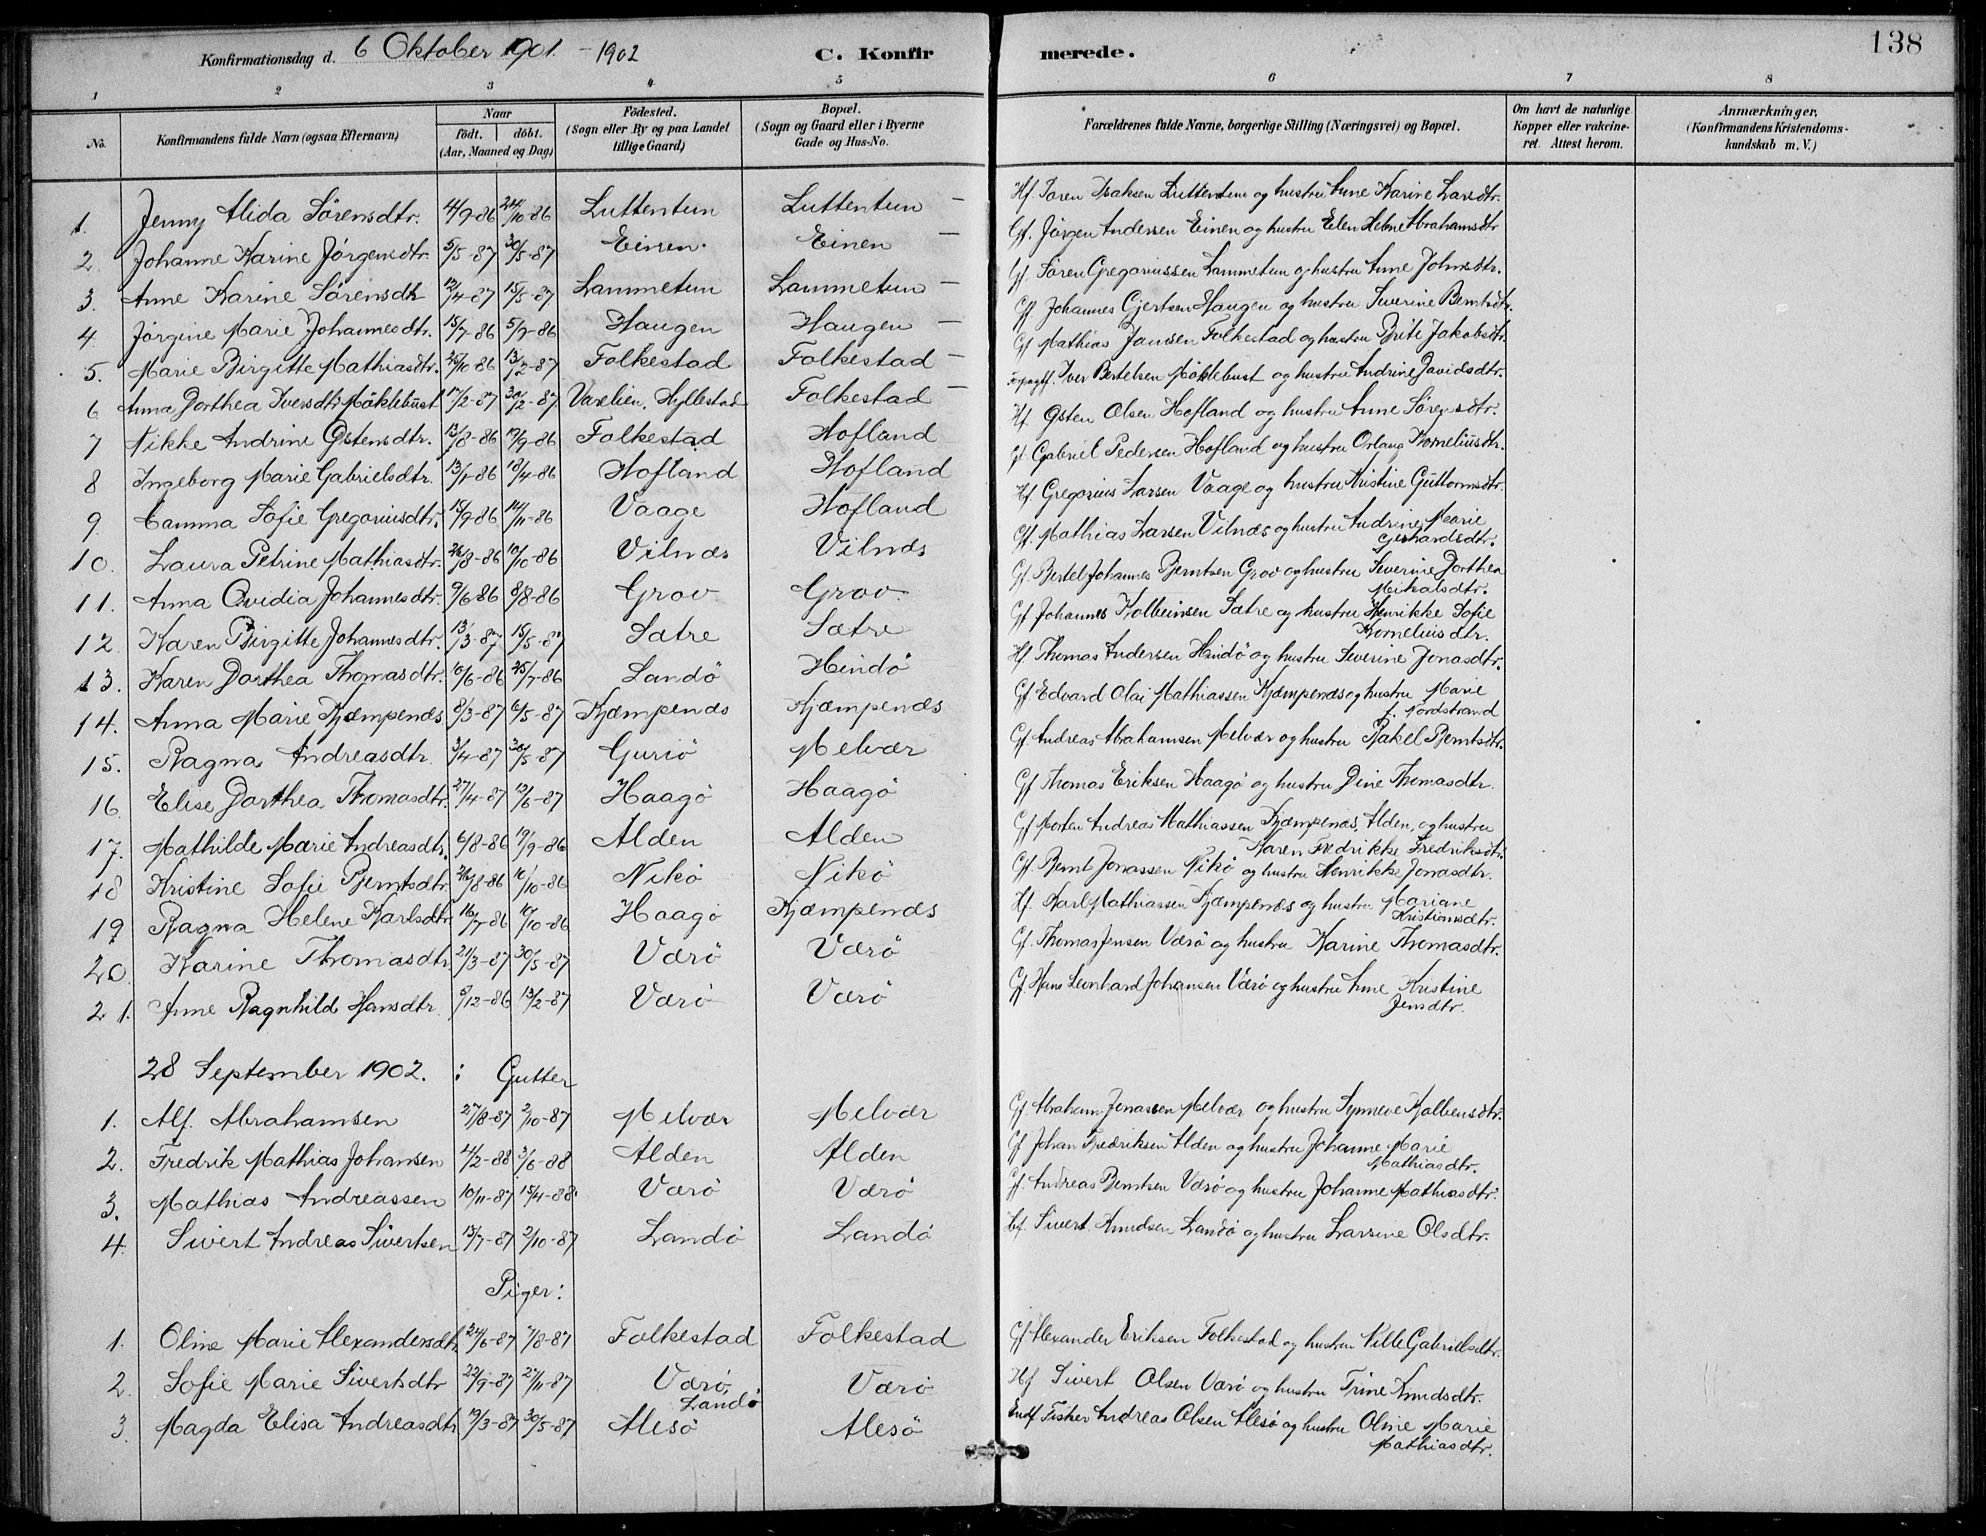 138
Konfirmationsdag d. 6 Oktober 1901. - 1902 C. Konfirmerede.
1 2 3 4 5 6 7 8
No. Konfirmandens fulde Navn (ogsaa Efternavn) Naar født. døbt. (Aar, Maaned og Dag) Fødested. (Sogn eller By og paa Landet tillige Gaard) Bopæl. (Sogn og Gaard eller i Byerne Gade og Hus-No. Forældrenes fulde Navne, borgerlige Stilling (Næringsvei) og Bopæl. Om havt de naturlige Kopper eller vakcineret. Attest herom. Anmærkninger. (Konfirmandens Kristendomskundskab m. V.)
1. Jenny Alida Sörensdtr. 4/9-86 24/10-86 Luttentun Luttentun - Hf. Sören Isaksen Luttentun og hustru Anne Karine Larsdtr.
2. Johanne Karine Jörgensdtr. 5/5-87 30/5-87 Einen. Einen - Gf. Jörgen Andersen Einen og hustru Elen Helene Abrahamsdtr
3. Anne Karine Sörensdtr 12/4-87 15/5-87 Lammetun Lammetun - Gf Sören Gregoriussen Lammetun og hustru Anne Johnsdtr.
4. Jörgine Marie Johannesdtr. 15/7-86 5/9-86 Haugen Haugen - Gf. Johannes Gjertsen Haugen og hustru Severine Berntsdtr.
5. Marie Birgitte Mathiasdtr. 25/10-86 13/2-87 Folkestad Folkestad - Gf Mathias Jansen Folkestad og hustru Brite Jakobsdtr.
6 Anna Dorthea Iversdtr Möklebust 17/2-87 20/2-87 Varelien, Hyllestad Folkestad - Iver Bertelsen Möklebust og hustru Andrine Davidsdtr.
7 Nikke Andrine Östensdtr. 13/8-86 19/9-86 Folkestad Hofland Hf Østen Olsen Hofland og hustru Anne Sörensdtr.
8 Ingeborg Marie Gabrielsdtr. 13/1-86 18/4-86 Hofland Hofland Gf Gabriel Pedersen Hofland og hustru Orlaug Korneliusdtr.
9. Camma Sofie Gregoriusdtr. 15/9-86 14/11-86 Vaage Hofland Hf Gregorius Larsen Vaage og hustru Kristine Guttormsdtr.
10. Laura Petrine Mathiasdtr. 26/8-86 10/10-86 Vilnæs Vilnæs Gf. Mathias Larsen Vilnæs og hustru Andrine Marie Gerhardsdtr.
11. Anna Ovidia Johannesdtr. 9/6-86 8/8-86 Grov Grov Gf Bertel Johannes Berntsen Grov og hustru Severine Dorthea Mikalsdtr.
12. Karen Birgitte Johannesdtr. 13/3-87 15/5-87 Sætre Sætre Gf Johannes Kolbeinsen Sætre og hustru Henrikke Sofie Korneliusdtr.
13. Karen Dorthea Thomasdtr. 10/6-86 25/7-86 Landö Heindö Hf. Thomas Andersen Hindö og hustru Severine Jonasdtr.
14. Anna Marie Kjæmpenæs 8/3-87 6/5-87 Kjæmpenæs Kjæmpenæs Gf Edvard Olai Mathiassen Kjæmpenæs og hustru Marie f. Nordstrand
15. Ragna Andreasdtr. 3/4-87 30/5-87 Guriö Melvær Gf Andreas Abrahamsen Melvær og hustru Rakel Berntsdtr.
16 Elise Dorthea Thomasdtr. 27/4-87 12/6-87 Haagö Haagö Gf Thomas Eriksen Haagö og hustru Dine Thomasdtr.
17. Mathilde Marie Andreasdtr. 6/8-86 19/9-86 Alden Alden Gf Morten Andreas Mathiassen Kjæmpenæs, Alden, og hustru Karen Fredrikke Fredriksdtr.
18 Kristine Sofie Berntsdtr. 26/8-86 10/10-86 Nikö Nikö Gf. Bernt Jonassen Nikö og hustru Henrikke Jonasdtr.
19 Ragna Helene Karlsdtr 16/7-86 10/10-86 Haagö Kjæmpenæs Hf. Karl Mathiassen Kjæmpenæs og hustru Mariane Kristiansdtr.
20 Karine Thomasdtr. 21/3-87 30/5-87 Værö Værö Gf. Thomas Jensen Værö og hustru Karine Thomasdtr.
21. Anne Ragnhild Hansdtr. 5/12-86 13/2-87 Værö Værö Gf Hans Leonhard Johansen Værö og hustru Anne Kristine Jensdtr.
28 September 1902. : Gutter
1. Alf. Abrahamsen 27/8-87 2/10-87 Melvær Melvær Gf. Abraham Jonassen Melvær og hustru Synneve Kolbensdtr.
2. Fredrik Mathias Johansen 4/2-88 3/6-88 Alden Alden Gf Johan Fredriksen Alden og hustru Johanne Marie Mathiasdtr.
3. Mathias Andreassen 10/11-87 15/4-88 Værö Værö Gf. Andreas Berntsen Værö og hustru Johanne Mathiasdtr.
4. Sivert Andreas Sivertsen 13/7-87 2/10-87 Landö Landö Hf. Sivert Knudsen Landö og hustru Larsine Olsdtr.
Piger:
1. Oline Marie Alexandersdtr 24/6-87 7/8-87 Folkestad Folkestad Gf Alexander Eriksen Folkestad og hustru Nille Gabrielsdtr.
2 Sofie Marie Sivertsdtr 22/9-87 27/11-87 Værö, Landö Værö Hf Sivert Olsen Værö og hustru Trine Knudsdtr.
3. Magda Elisa Andreasdtr 19/3-87 30/5-87 Alesö Alesö Fisker Andreas Olsen Alesö og hustru Oline Marie Mathiasdtr.